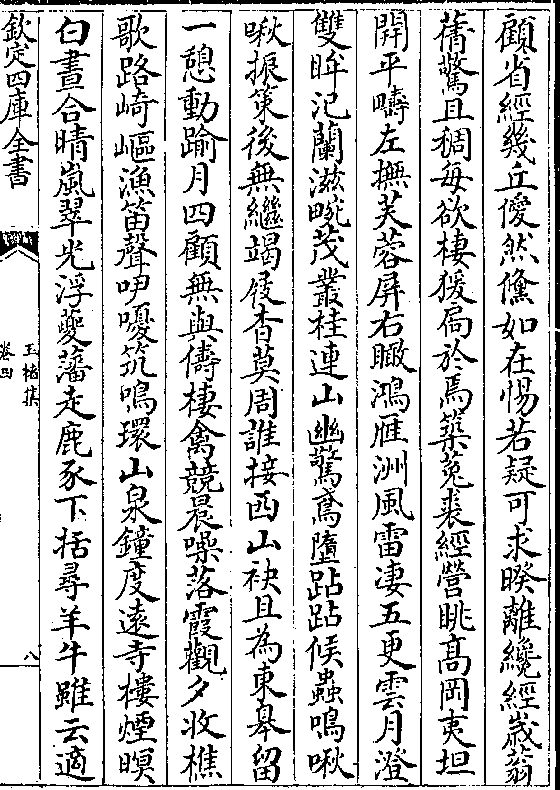 顧省經幾丘僾然儵如在惕若疑可求暌離纔經歲蓊
蒨驚且稠每欲棲猨扃於焉築菟裘經營眺高岡夷坦
開平疇左撫芙蓉屏右瞰鴻雁洲風雷凄五更雲月澄
雙眸汜蘭滋畹茂叢桂連山幽驚鳶墮跕跕候蟲鳴啾
啾振策後無繼竭屐杳莫周誰接西山袂且為東皋留
一憩動踰月四顧無與儔棲禽競晨噪落霞觀夕收樵
歌路崎嶇漁笛聲咿嚘筑鳴環山泉鐘度遠寺樓煙暝
白晝合晴嵐翠光浮薆藩走鹿豕下括尋羊牛雖云適
欽定四庫全書
卷四
八